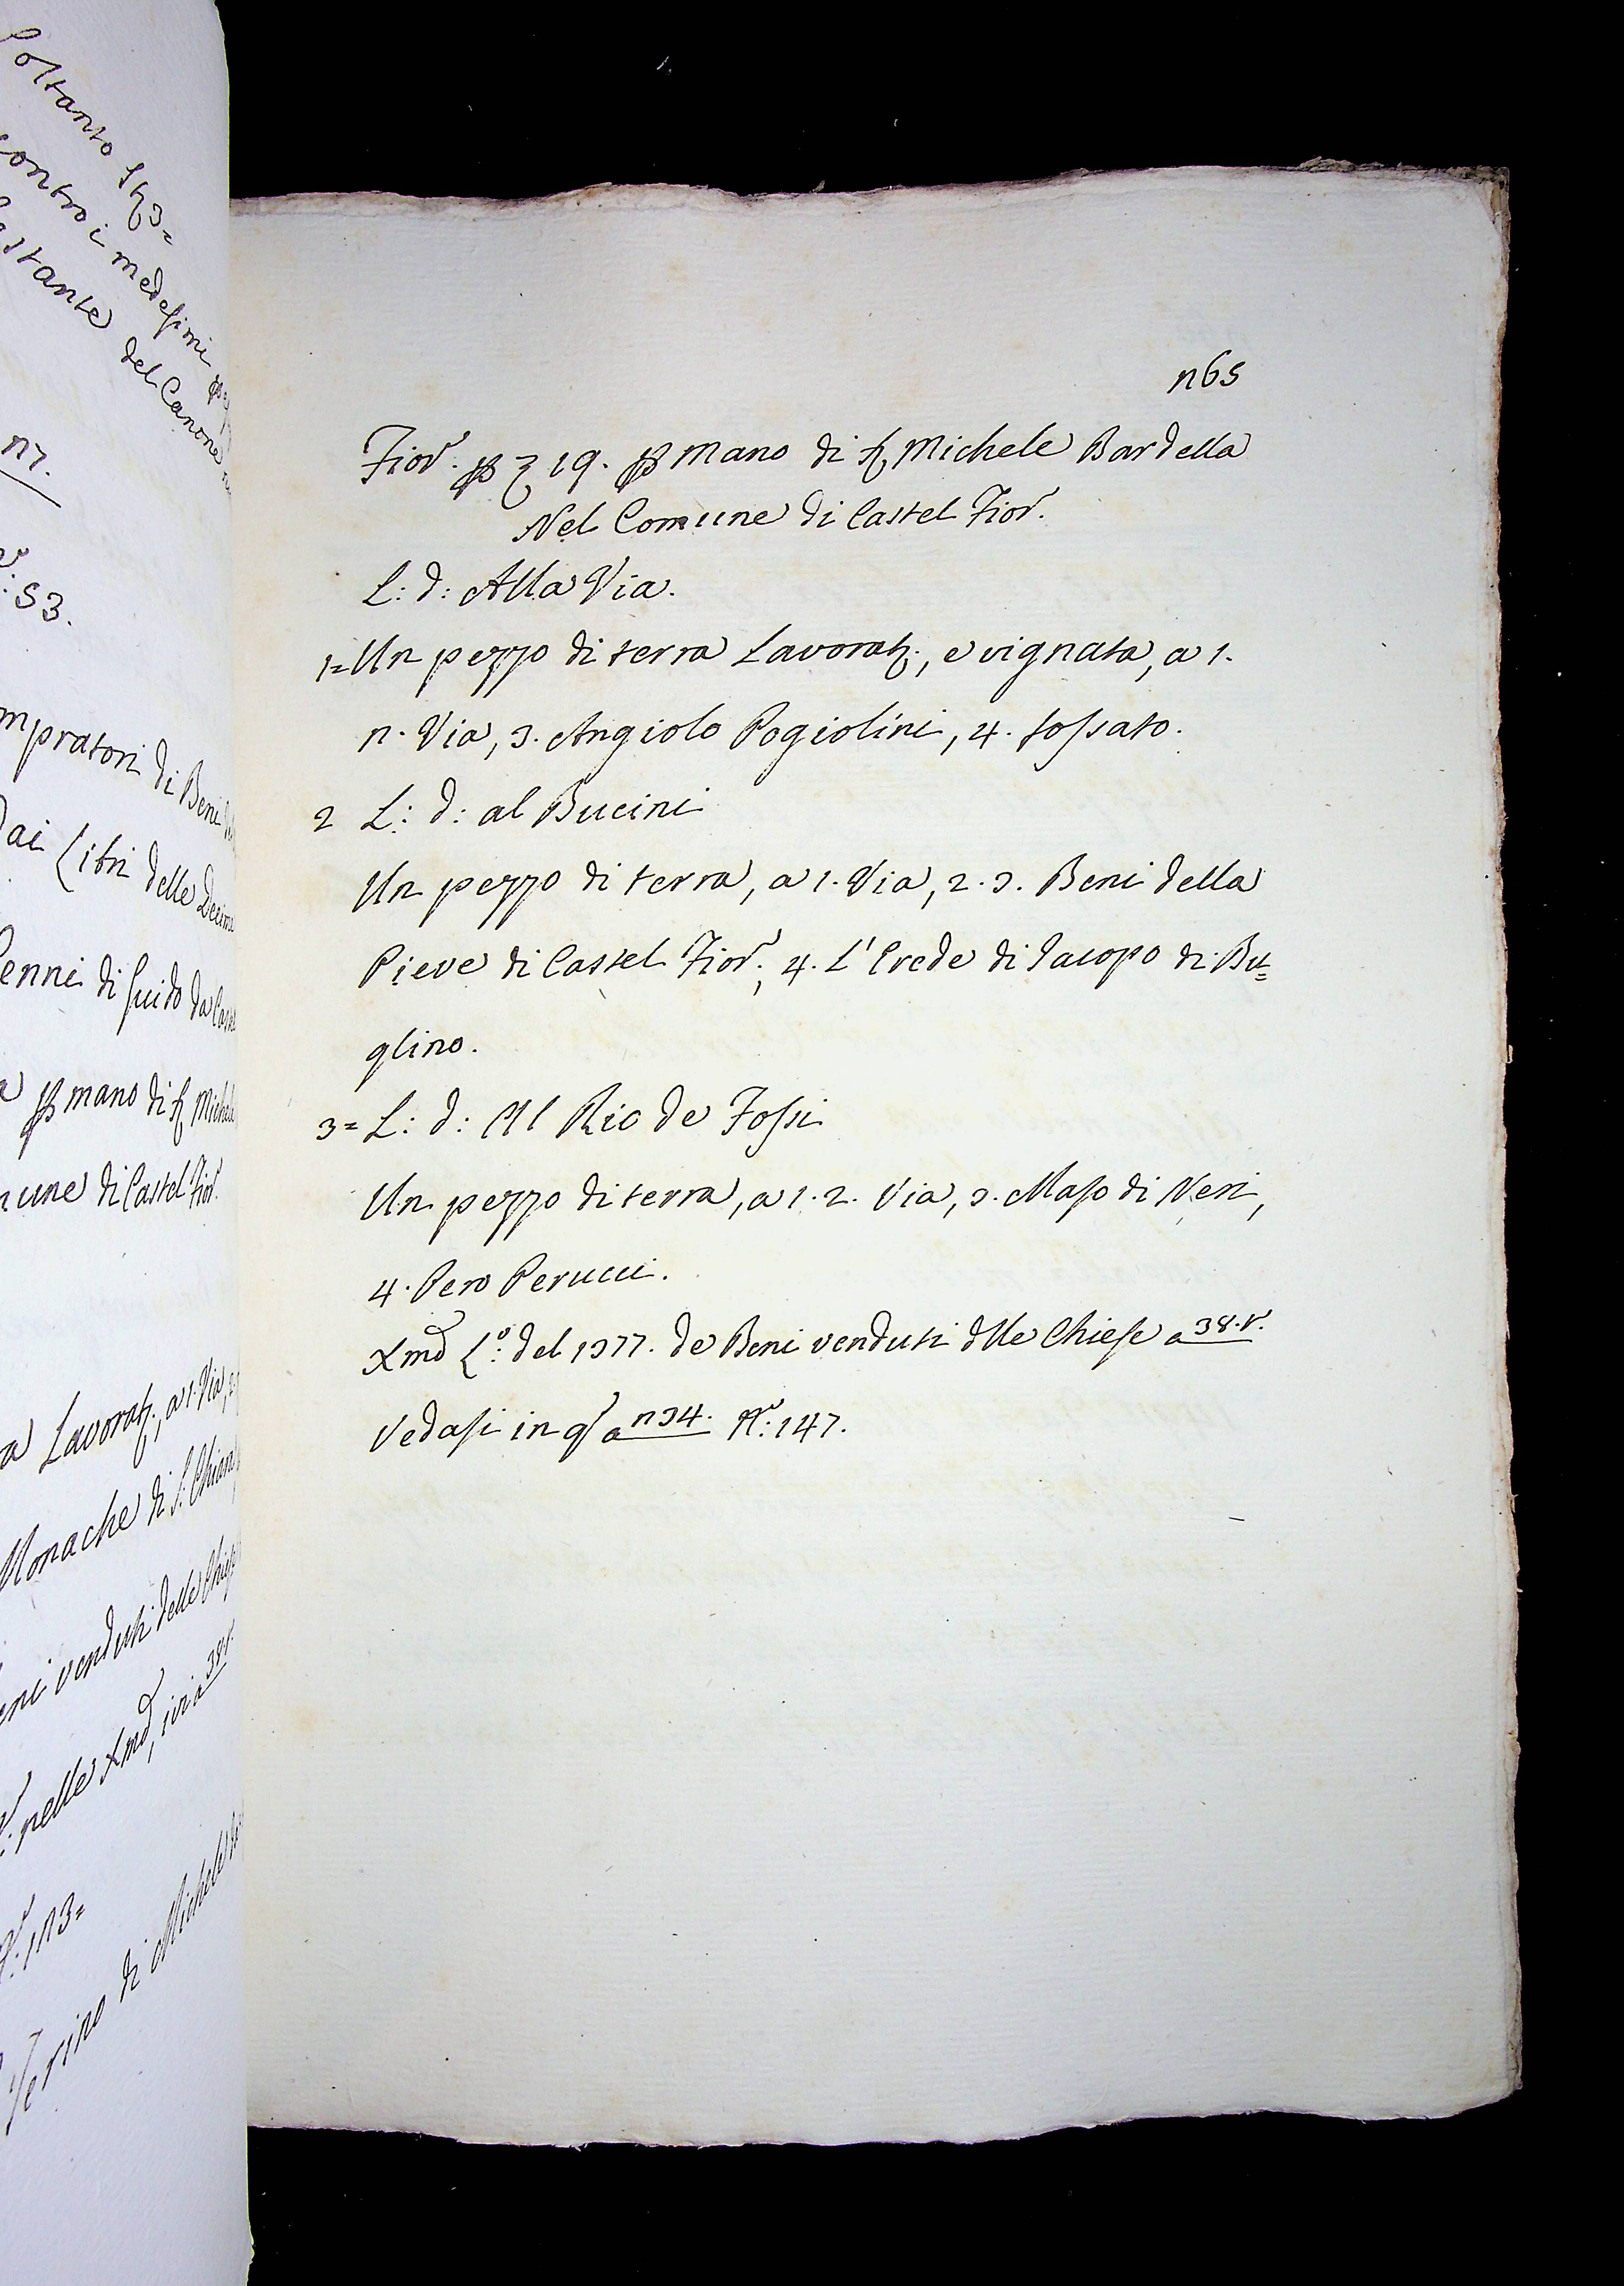 oltanto
contro i medesimi
stante del Canone
n7.
:53.
mpratori di Beni
Dai Libri delle Decime
enni di Guido da Cast
mano di Michele
mune di Castel Fior.
a Lavorat., a 1. Via, 2.
Monache di S. Chiara
eni venduti delle Chiese
: nelle Xme, ivi a 38 r.
: 1n3=
erino di Michele
n65
Fior. p 19. p mano di S. Michele Bardella
Nel Comune di Castel Fior.
L: d: Alla Via.
1= Un pezzo di terra Lavorat., e vignata, a 1.
n. Via, 3. Angiolo Pogiolini, 4. fossato.
2 L: d: al Bucini
Un pezzo di terra, a 1. Via, 2. 3. Beni della
Pieve di Castel Fior., 4. L'Erede di Jacopo di Bu=
glino.
3= L: d: Al Rio de Fossi
Un pezzo di terra, a 1. 2. Via, 3. Maso di Neri,
4. Pero Perucci.
Xme L.o del 1377. de Beni venduti dlle Chiese a 38. r.
Vedasi in q.o a n34. N.o: 147.